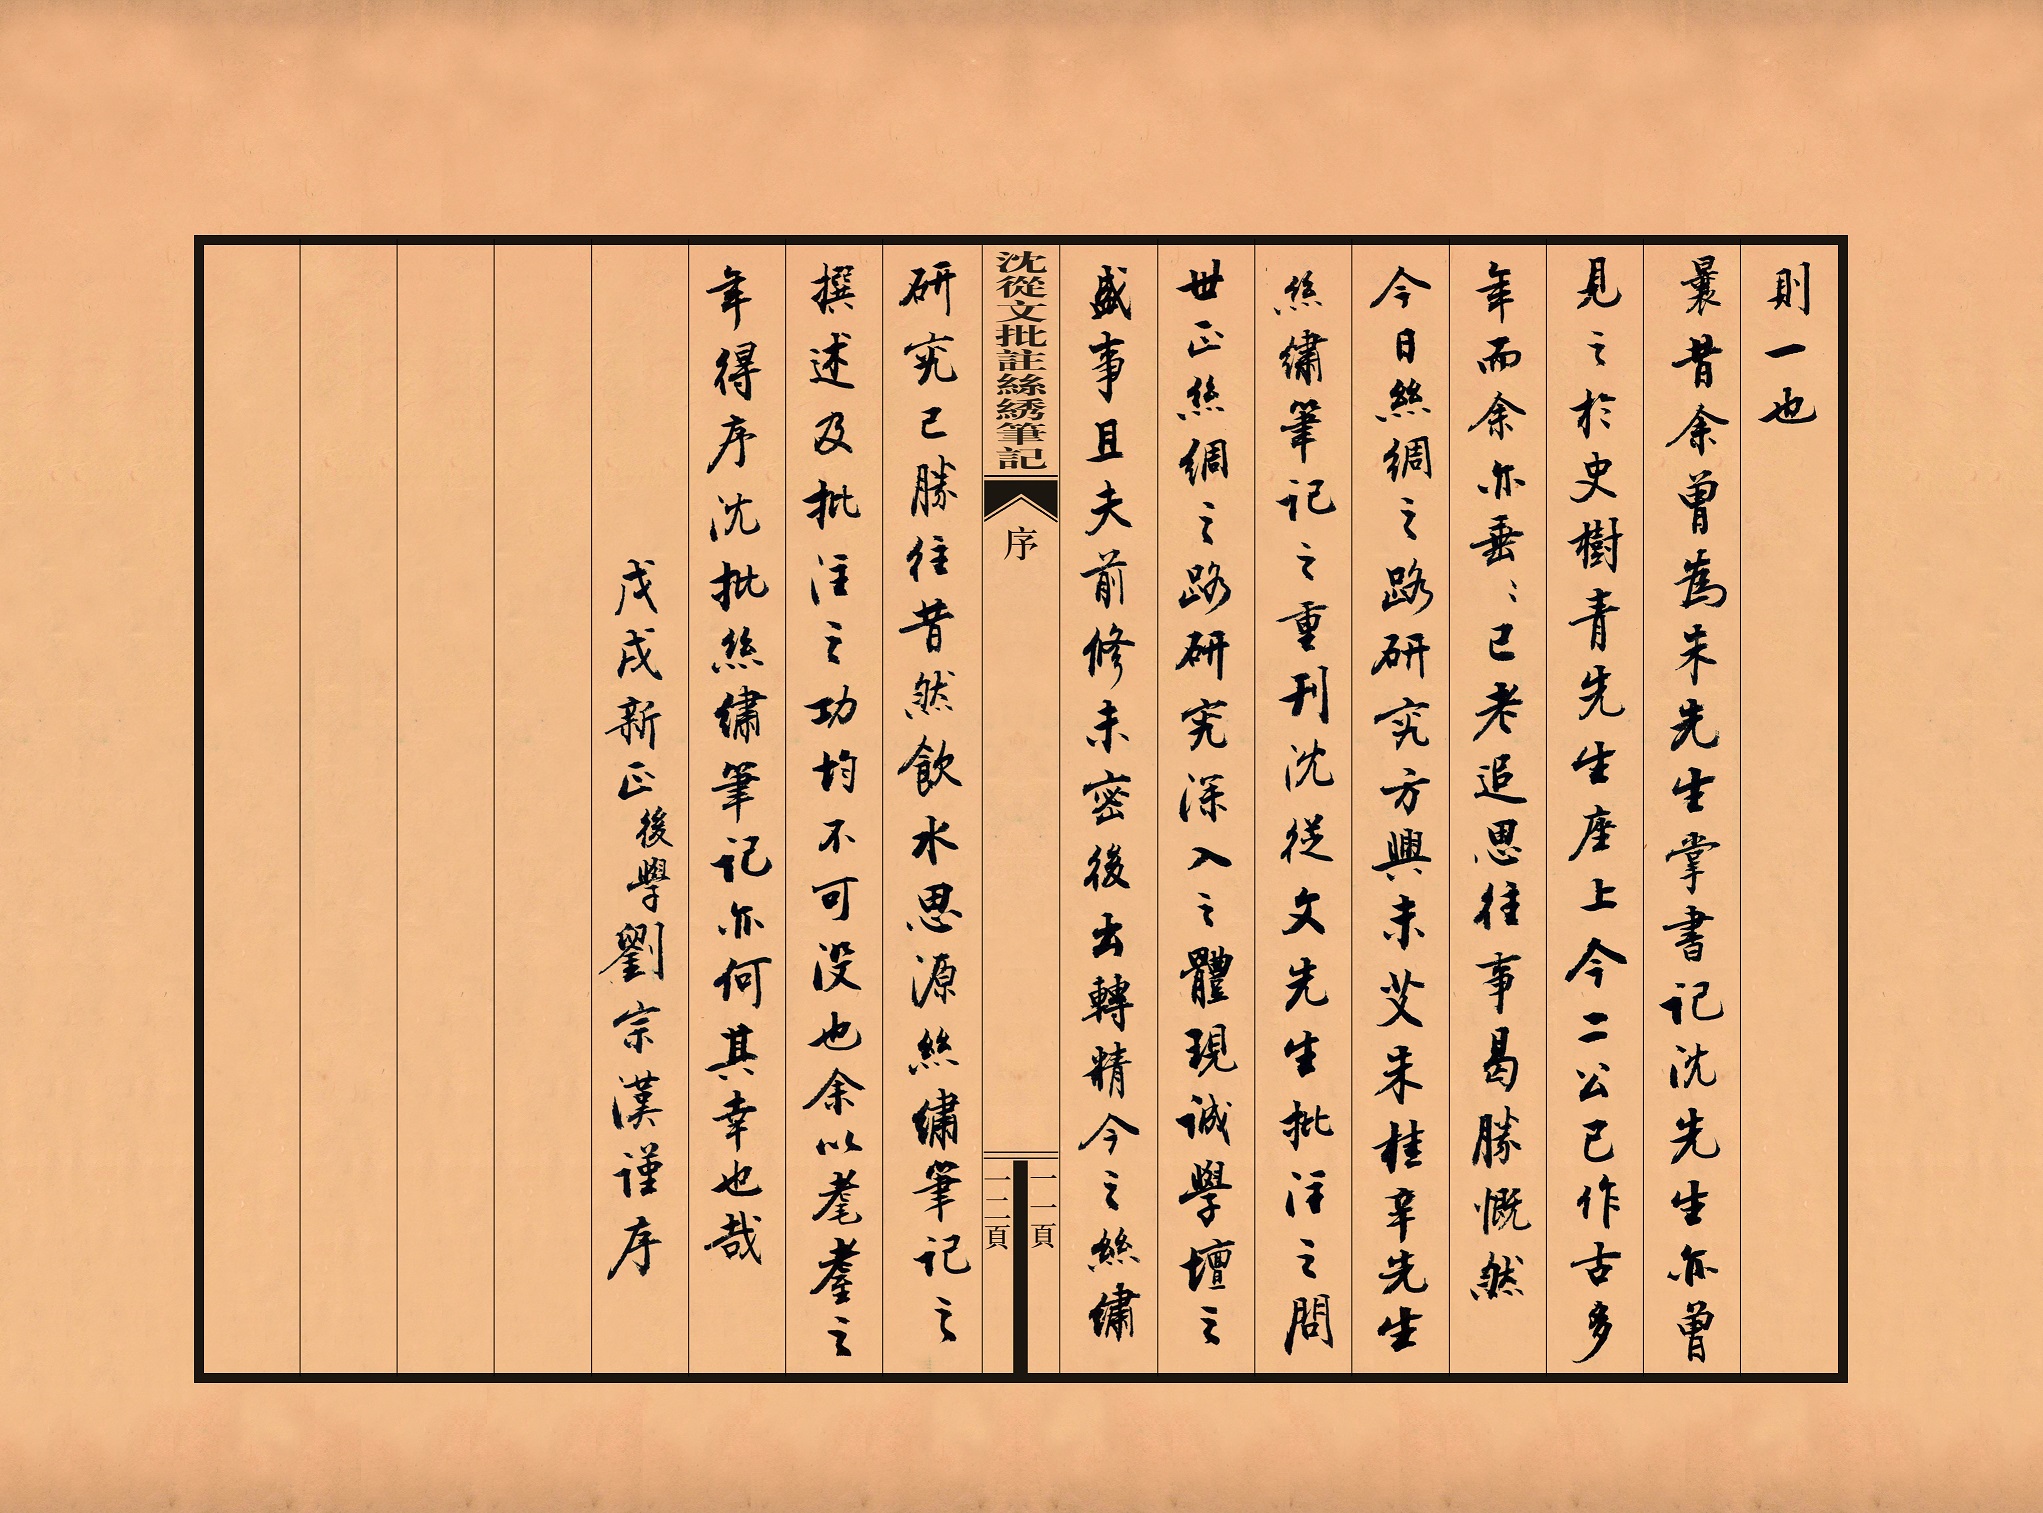 則一也
曩昔余曾爲朱先生掌書记沈先生亦曾
見之於史樹青先生座上今二公已作古多
年而余亦垂〻已老追思往事曷勝慨然
今日絲綢之路研究方興未艾朱桂辛先生
絲繡筆记之重刊沈從文先生批注之問
世正絲綢之路研究深入之體現誠學壇之
盛事且夫前修未密後出轉精今之絲繡
沈從文批註絲綉筆記
序
一一頁
一二頁
研究已勝往昔然飲水思源絲繡筆记之
撰述及批注之功均不可没也余以耄耋之
年得序沈批絲繡筆记亦何其幸也哉
戊戌新正後學劉宗漢谨序